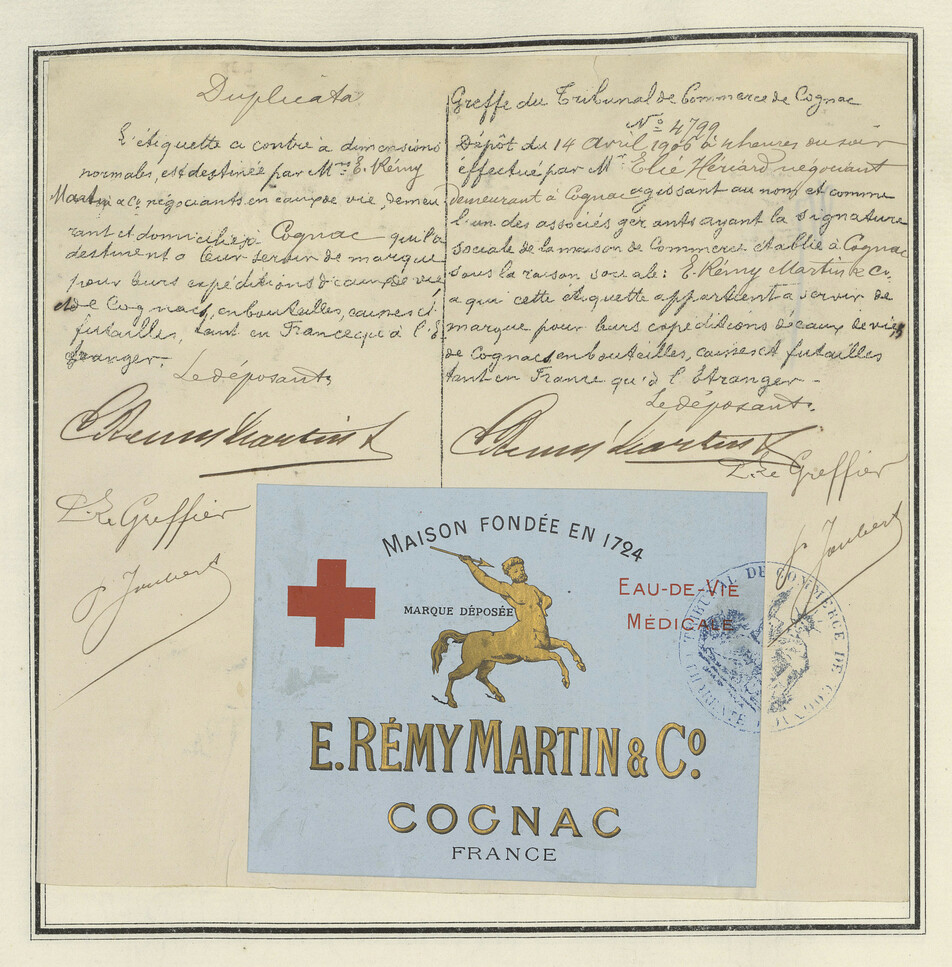 Duplicata
L'étiquette ci contre à dimensions
normales, est destinée par Mrs E. Rémy
Martin & Co négociants en eaux de vie, demeu
rant et domiciliés à Cognac qu'ils
destinent à leur servir de marque
pour leurs expéditions d'eaux de vie
de Cognac, en bouteilles, caisses et
futailles, tant en France qu'à l'É
tranger.
Le déposant,
E Remy Martin &
P. Le Greffier
P Joubert
Greffe du Tribunal de Commerce de Cognac
No 4799
Dépôt du 14 Avril 1906 à 4 heures du soir
éffectué par Mr Elie Hériard négociant
demeurant à Cognac agissant au nom et comme
l'un des associés gérants ayant la signature
sociale de la maison de Commerce établie à Cognac
sous la raison sociale: E. Rémy Martin & Co.
a qui cette étiquette appartient à servir de
marque pour leurs expéditions d'eaux de vie
de Cognac, en bouteilles, caisses et futailles
tant en France qu'à l'Étranger -
Le déposant.
E Remy Martin &
P. Le Greffier
P Joubert
MAISON FONDÉE EN 1724
MARQUE DÉPOSÉE
EAU-DE-VIE
MÉDICALE
E. RÉMY MARTIN & Co.
COGNAC
FRANCE
TRIBUNAL DE COMMERCE DE COGNAC
CHARENTE